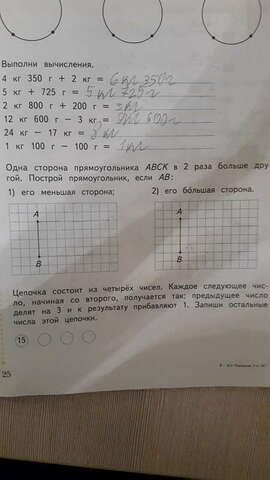 Выполни вычисления.
4 кг 350 г + 2 кг = 6 кг 350 г
5 кг + 725 г = 5 кг 725 г
2 кг 800 г + 200 г = 3 кг
12 кг 600 г − 3 кг = 9 кг 600 г
24 кг − 17 кг = кг
1 кг 100 г − 100 г = 1 кг
Одна сторона прямоугольника ABCK в 2 раза больше дру
гой. Построй прямоугольник, если AB:
1) его меньшая сторона; 2) его бо́льшая сторона.
A A
B B
Цепочка состоит из четырёх чисел. Каждое следующее чис-
ло, начиная со второго, получается так: предыдущее число
делят на 3 и к результату прибавляют 1. Запиши остальные
числа этой цепочки.
15
25